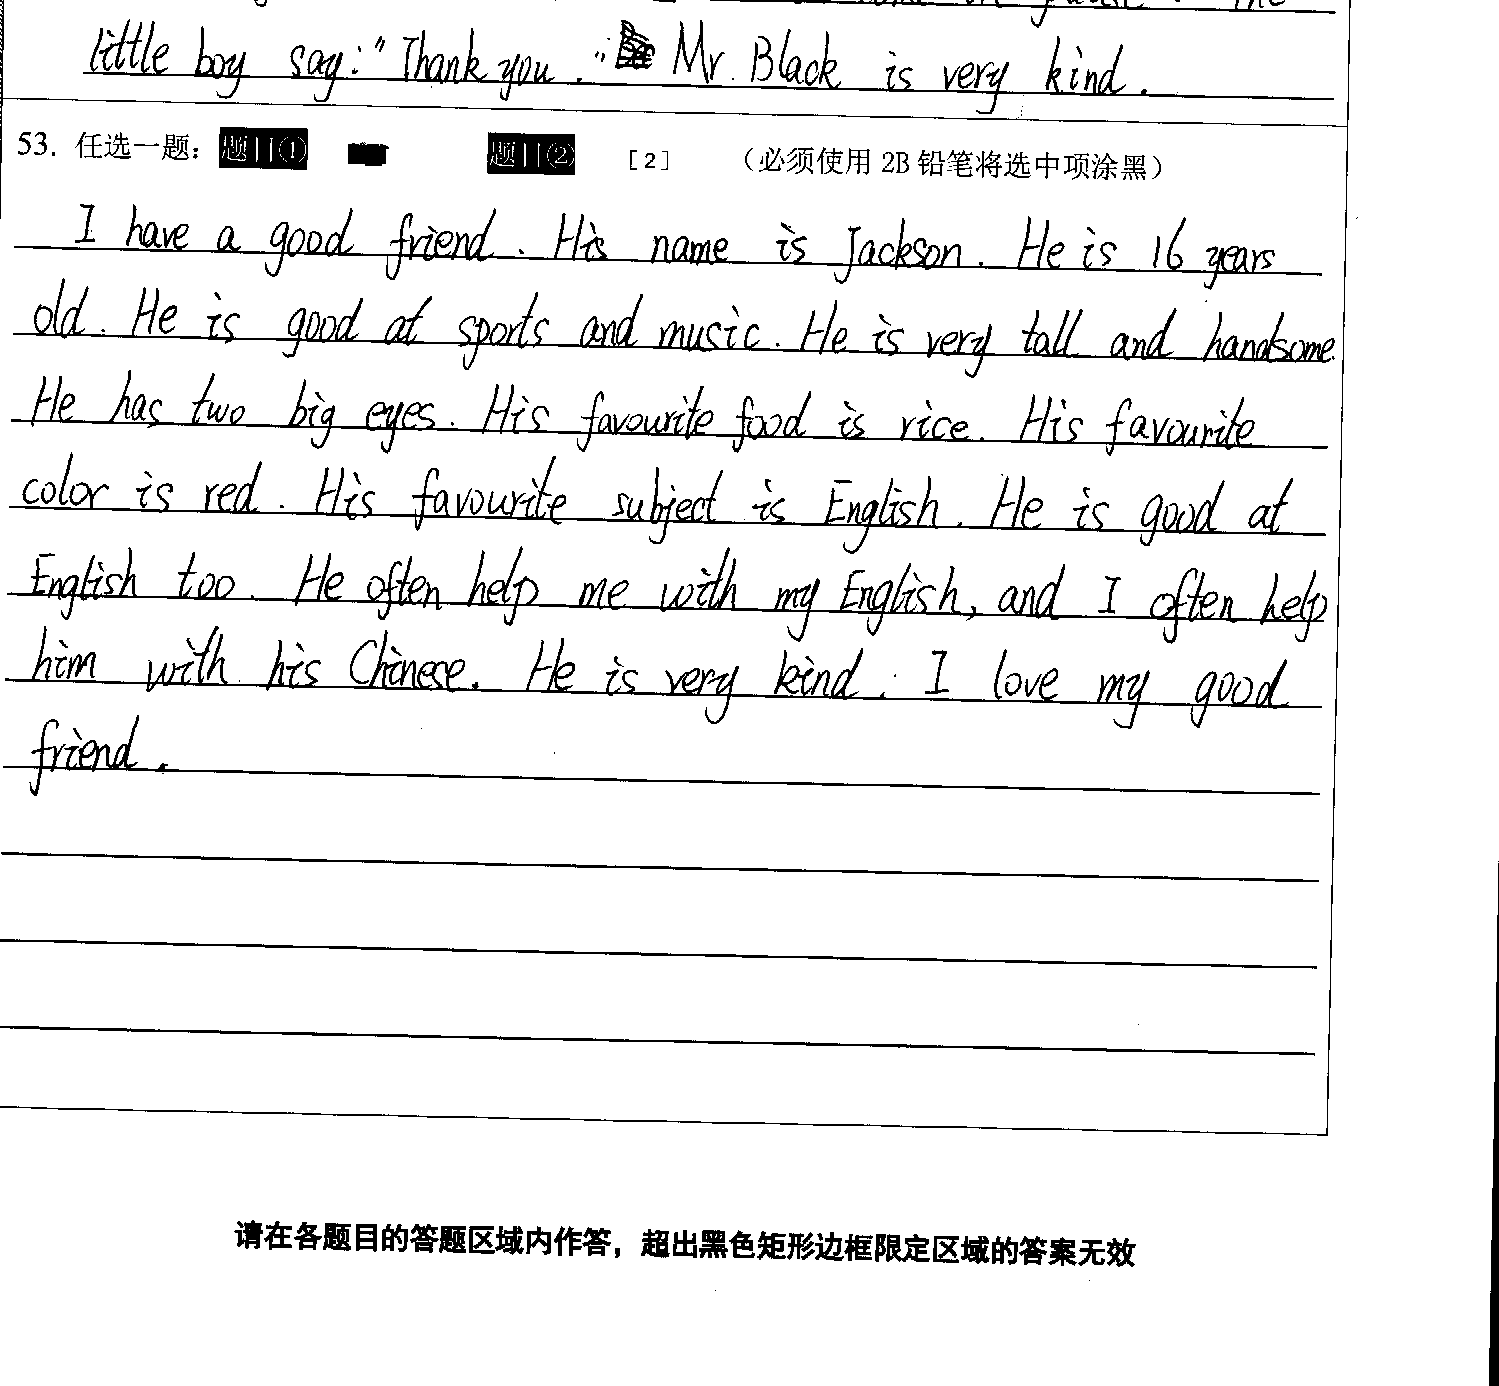 little boy say: "Thank you." Mr. Black is very kind.
53. 任选一题: 题目① 题目② [2] (必须使用 2B 铅笔将选中项涂黑)
I have a good friend. His name is Jackson. He is 16 years
old. He is good at sports and music. He is very tall and handsome.
He has two big eyes. His favourite food is rice. His favourite
color is red. His favourite subject is English. He is good at
English too. He often help me with my English, and I often help
him with his Chinese. He is very kind. I love my good
friend.
请在各题目的答题区域内作答，超出黑色矩形边框限定区域的答案无效